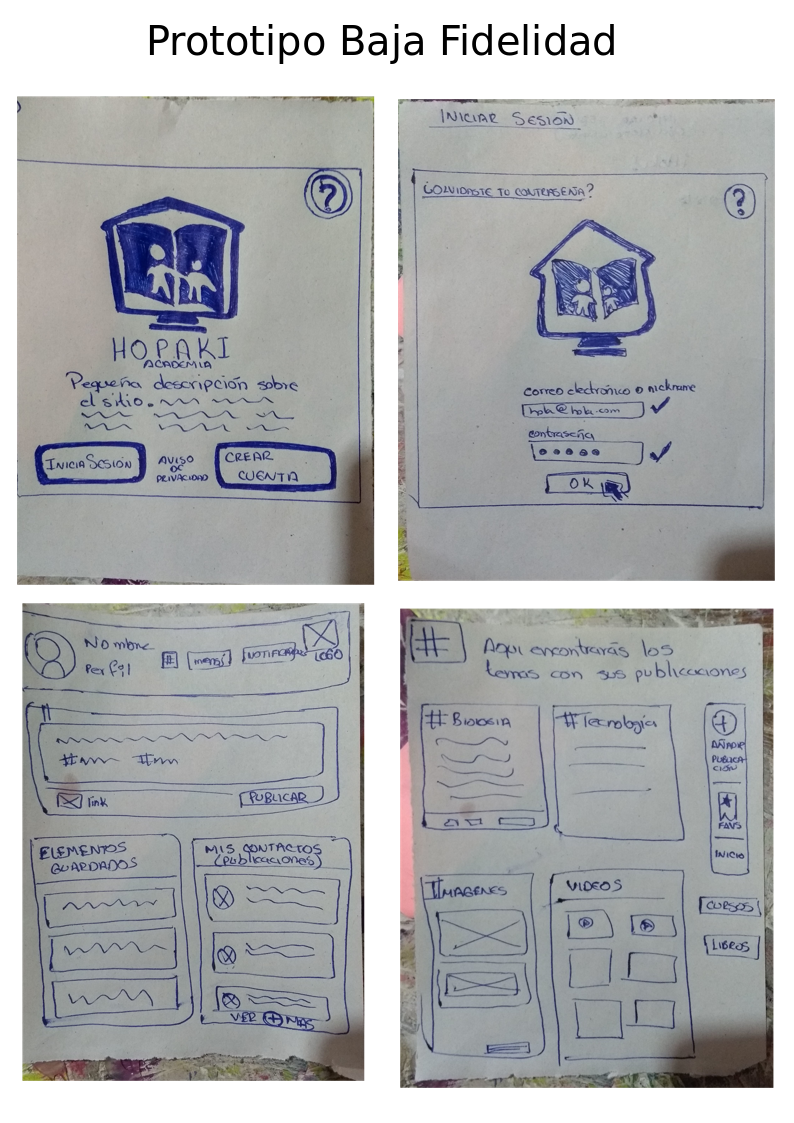 Prototipo Baja Fidelidad
?
HOPAKI
ACADEMIA
Pequeña descripción sobre
el sitio.
INICIA SESIÓN
AVISO
DE
PRIVACIDAD
CREAR
CUENTA
INICIAR SESIÓN
¿OLVIDASTE TU CONTRASEÑA?
?
correo electrónico o nickname
hola@hola.com
contraseña
OK
Nombre
Perfil
#
menú
LOGO
# #
link
PUBLICAR
ELEMENTOS
GUARDADOS
MIS CONTACTOS
(publicaciones)
VER + MAS
#
Aquí encontrarás los
temas con sus publicaciones
# BIOLOGIA
# Tecnología
+
AÑADIR
PUBLICA
CIÓN
FAVS
INICIO
IMAGENES
VIDEOS
CURSOS
LIBROS